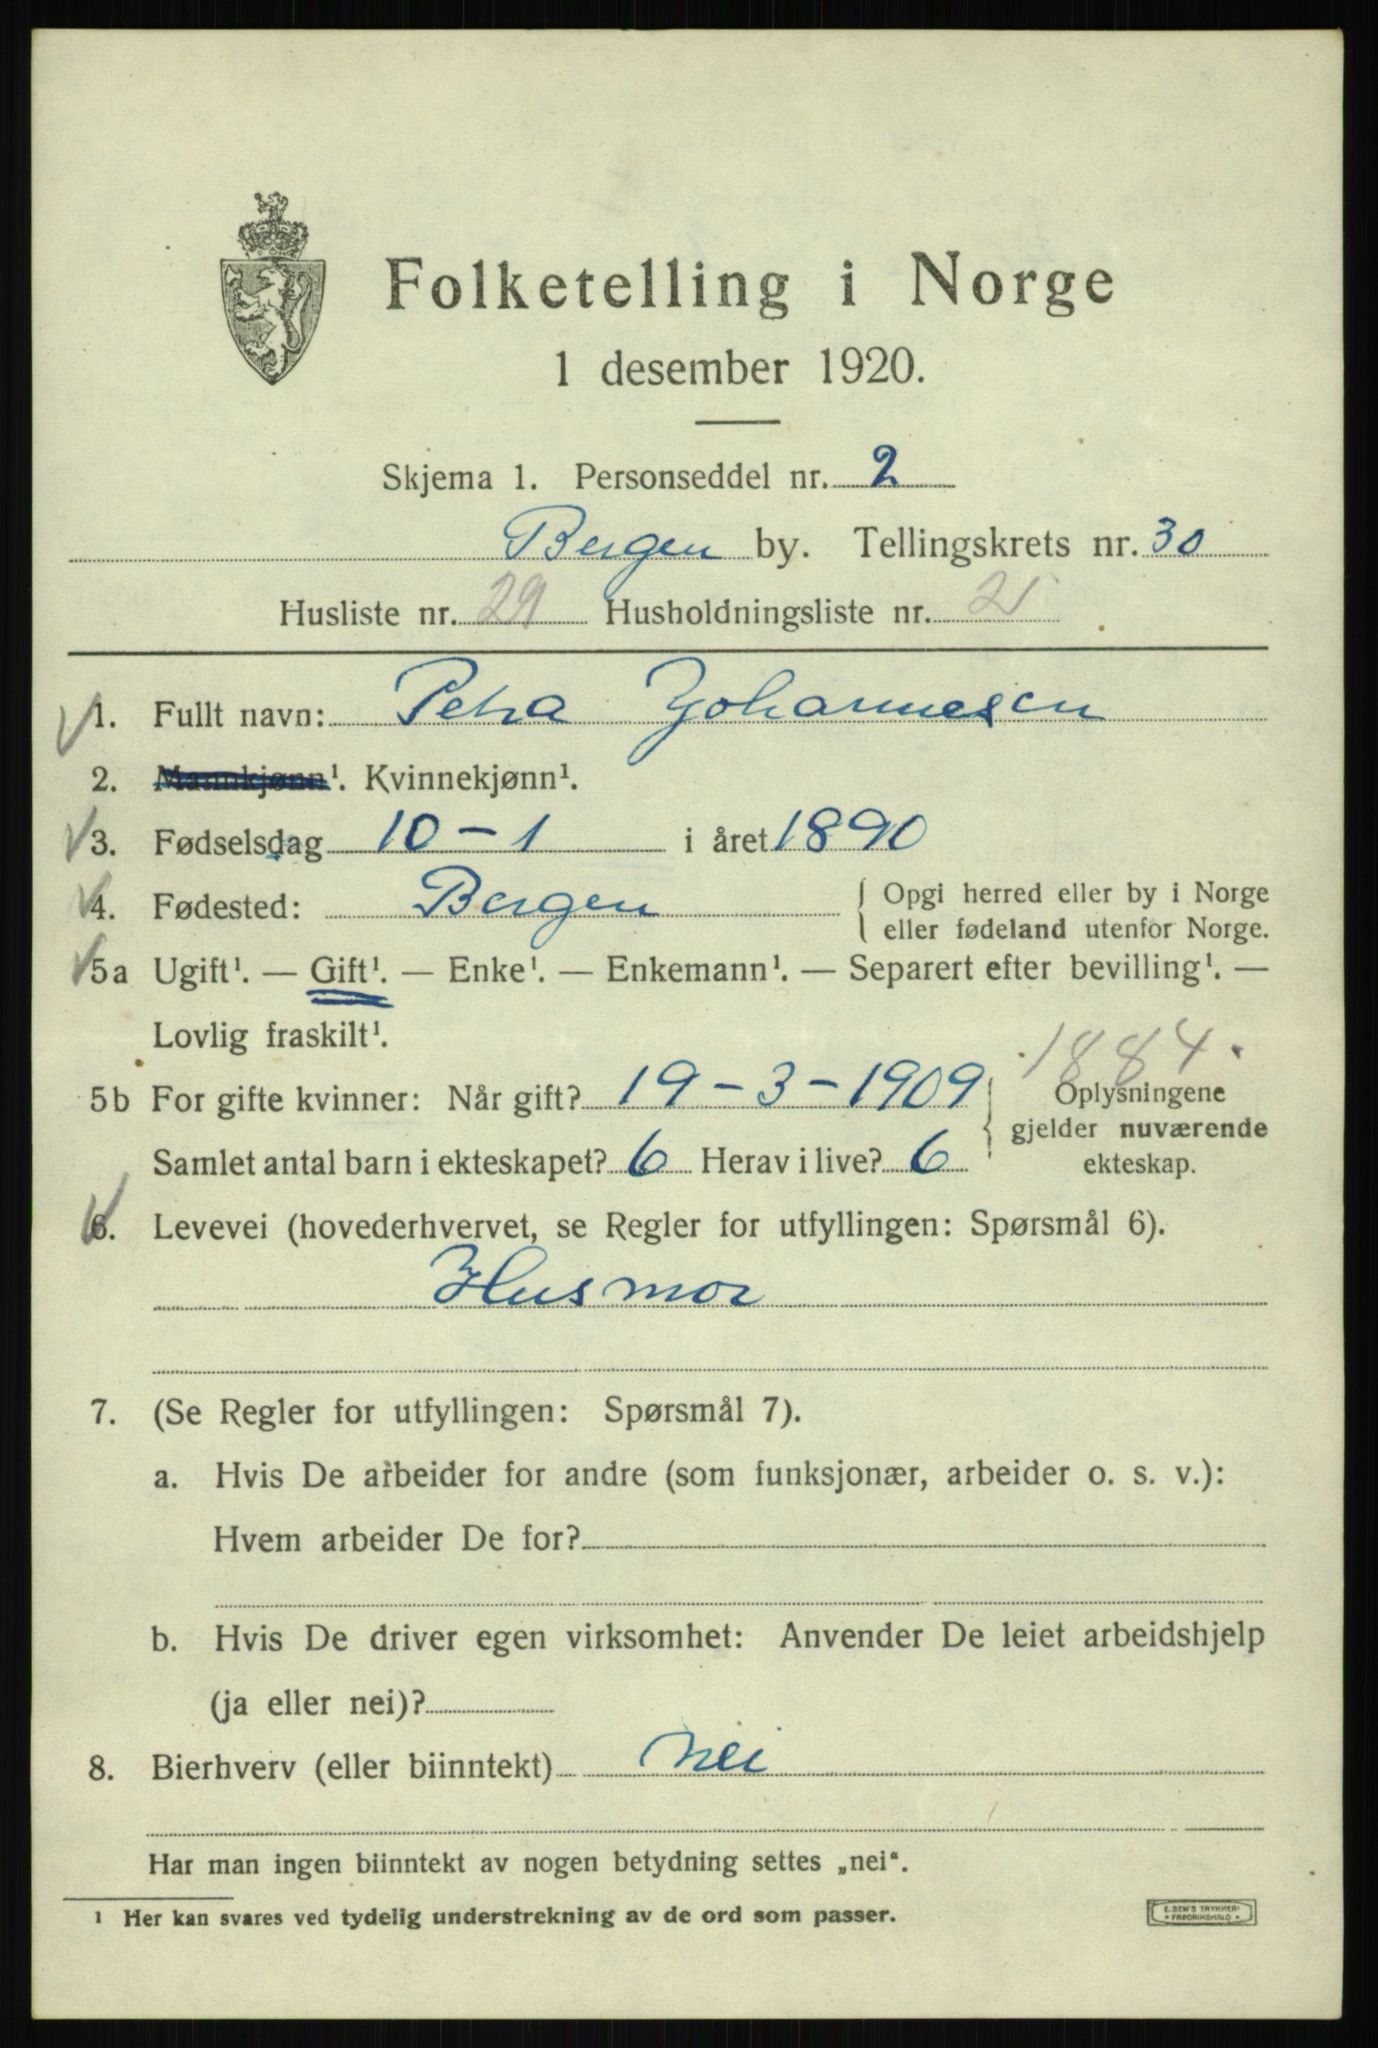 Folketelling i Norge
1 desember 1920.
Skjema 1. Personseddel nr. 2
Bergen by. Tellingskrets nr. 30
Husliste nr. 29 Husholdningsliste nr. 2
1. Fullt navn: Petra Johannesen
2. Mannkjønn¹. Kvinnekjønn¹.
3. Fødselsdag 10-1 i året 1890
4. Fødested: Bergen { Opgi herred eller by i Norge
eller fødeland utenfor Norge.
5a Ugift¹. — Gift¹. — Enke¹. — Enkemann¹. — Separert efter bevilling¹. —
Lovlig fraskilt¹.
1884.
5b For gifte kvinner: Når gift? 19-3-1909 { Oplysningene
gjelder nuværende
Samlet antal barn i ekteskapet? 6 Herav i live? 6 ekteskap.
6. Levevei (hovederhvervet, se Regler for utfyllingen: Spørsmål 6).
Husmor
7. (Se Regler for utfyllingen: Spørsmål 7).
a. Hvis De arbeider for andre (som funksjonær, arbeider o. s. v.):
Hvem arbeider De for?
b. Hvis De driver egen virksomhet: Anvender De leiet arbeidshjelp
(ja eller nei)?
8. Bierhverv (eller biinntekt) Nei
Har man ingen biinntekt av nogen betydning settes „nei“.
¹ Her kan svares ved tydelig understrekning av de ord som passer.
E. SEM'S TRYKKERI
FREDRIKSHALD